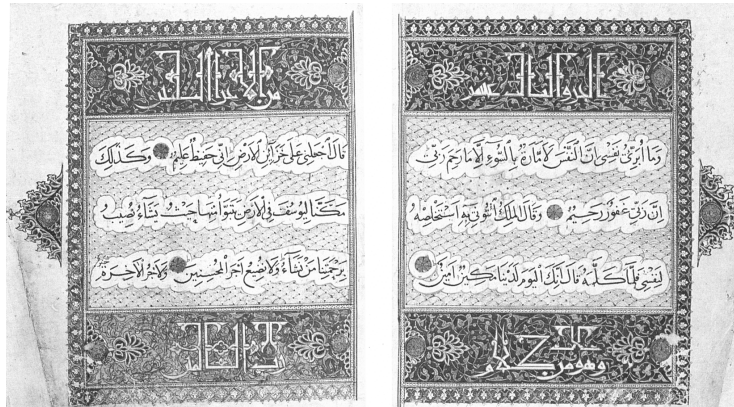 الجزو الثالث عشر
وَمَا أُبَرِّئُ نَفْسِي إِنَّ النَّفْسَ لَأَمَّارَةٌ بِالسُّوءِ إِلَّا مَا رَحِمَ رَبِّي
إِنَّ رَبِّي غَفُورٌ رَحِيمٌ وَقَالَ الْمَلِكُ ائْتُونِي بِهِ أَسْتَخْلِصْهُ
لِنَفْسِي فَلَمَّا كَلَّمَهُ قَالَ إِنَّكَ الْيَوْمَ لَدَيْنَا مَكِينٌ أَمِينٌ
وهو من كلام
من الاجزا
قَالَ اجْعَلْنِي عَلَى خَزَائِنِ الْأَرْضِ إِنِّي حَفِيظٌ عَلِيمٌ وَكَذَلِكَ
مَكَّنَّا لِيُوسُفَ فِي الْأَرْضِ يَتَبَوَّأُ مِنْهَا حَيْثُ يَشَاءُ نُصِيبُ
بِرَحْمَتِنَا مَنْ نَشَاءُ وَلَا نُضِيعُ أَجْرَ الْمُحْسِنِينَ وَلَأَجْرُ الْآخِرَةِ
رب العالمين